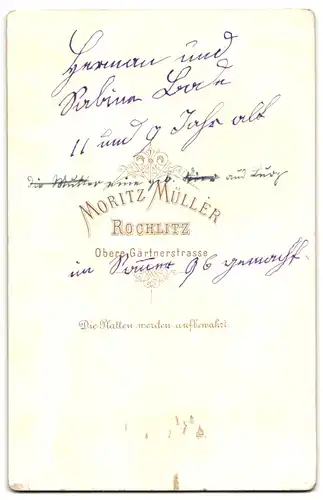 Herman und
Sabine Bade
11 und 9 Jahr alt
die Mutter eine geb. aus
MORITZ MÜLLER
ROCHLITZ
Obere Gärtnerstrasse
im Sommer 96 gemacht.
Die Platten werden aufbewahrt.